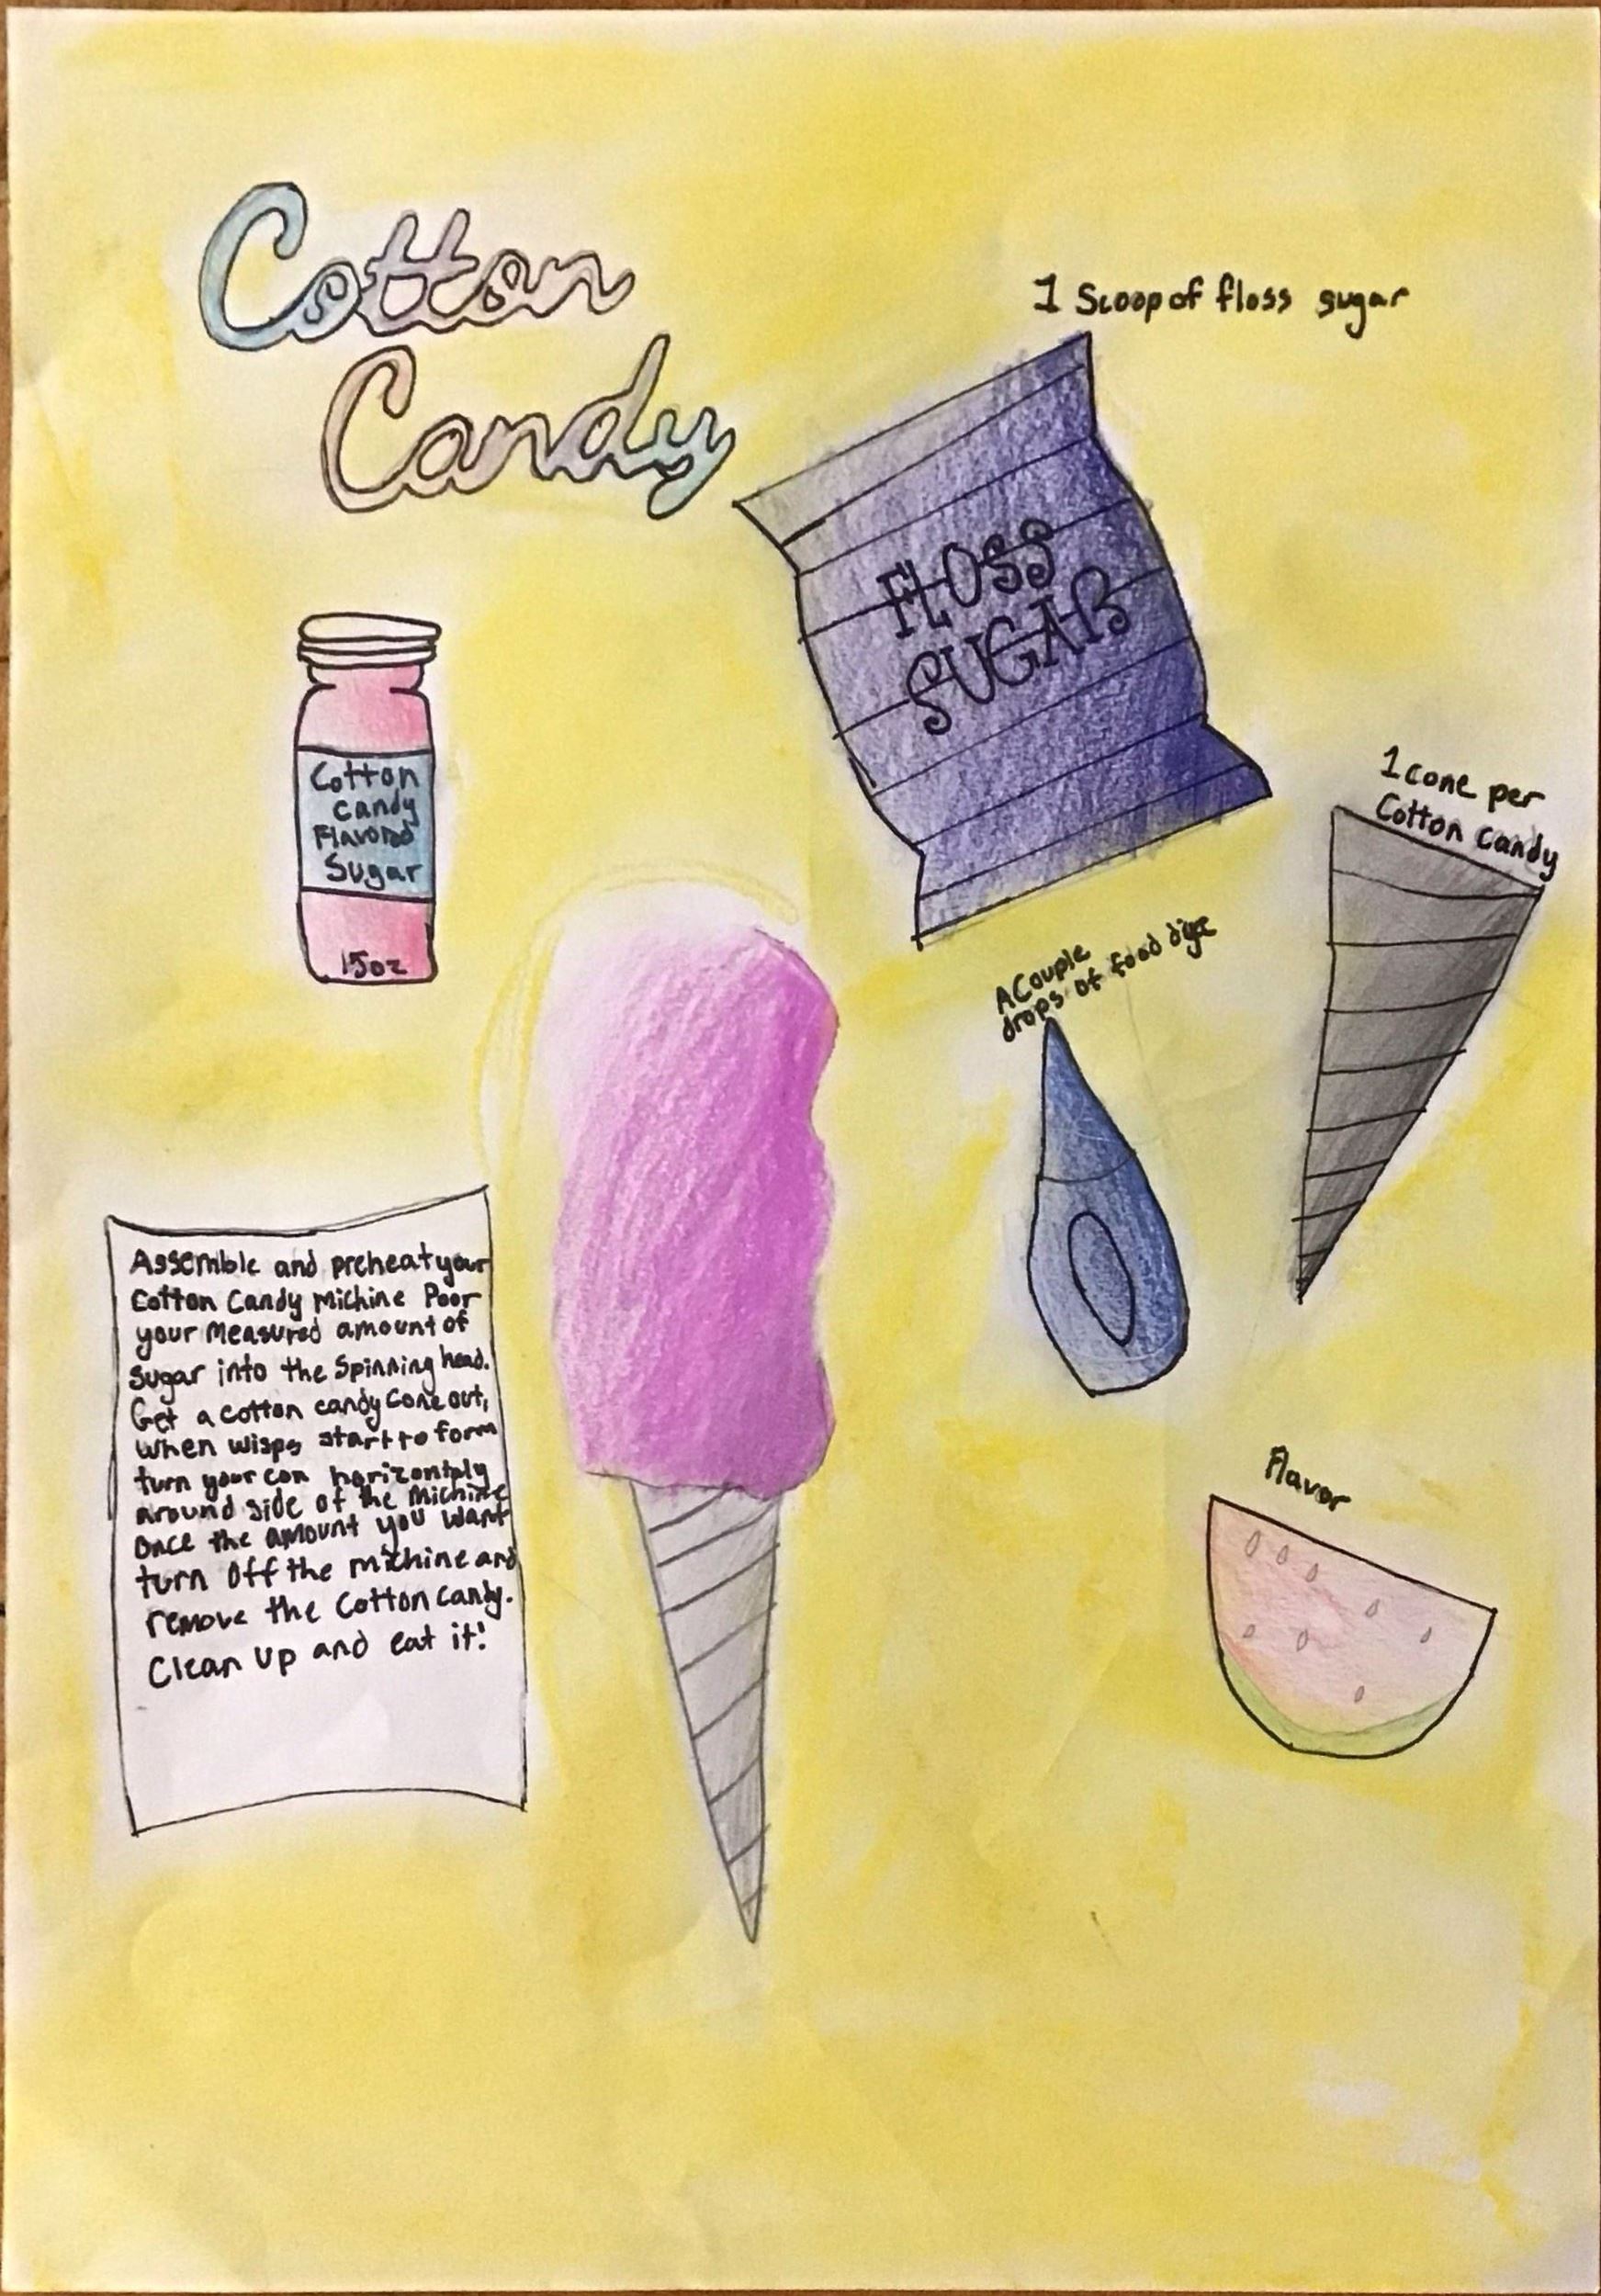 Cotton
Candy
1 Scoop of floss sugar
FLOSS
SUGAR
Cotton
Candy
Flavored
Sugar
15oz
1 cone per
Cotton Candy
A Couple
drops of food dye
Flavor
Assemble and preheat your
Cotton Candy Michine Poor
your Measured amount of
sugar into the Spinning head.
Get a cotton candy cone out,
when wisps start to form
turn your con horizontply
around side of the Michine
Once the amount you want
turn Off the michine and
remove the Cotton Candy.
Clean up and eat it!